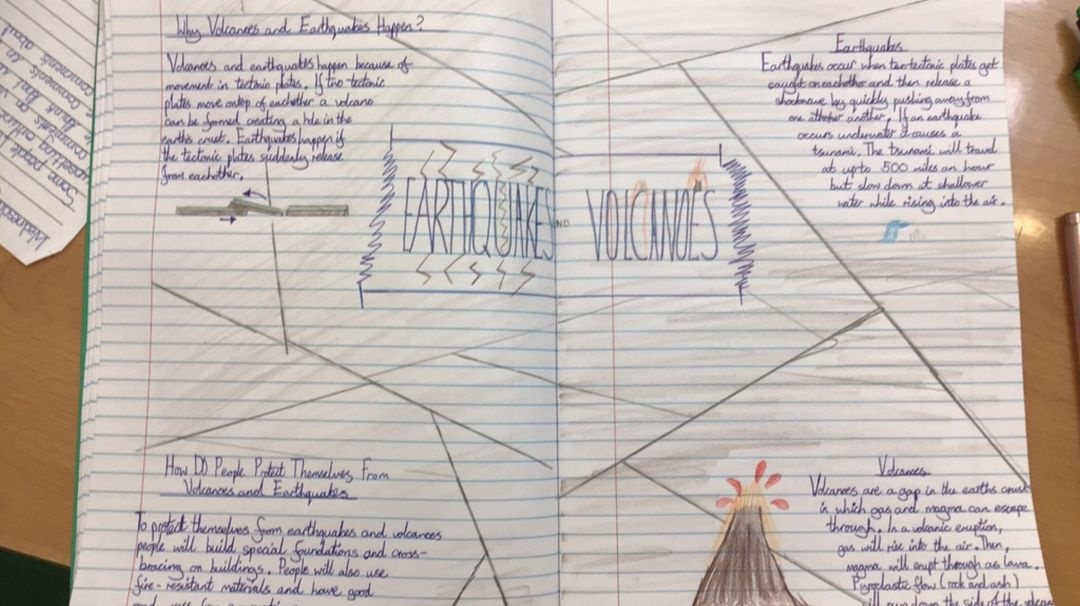 Why Volcanoes and Earthquakes Happen?
Volcanoes and earthquakes happen because of
movement in tectonic plates. If two tectonic
plates move ontop of eachother a volcano
can be formed creating a hole in the
earth's crust. Earthquakes happen if
the tectonic plates suddenly release
from eachother.
EARTHQUAKES AND VOLCANOES
Earthquakes
Earthquakes occur when two tectonic plates get
caught on eachother and then release a
shockwave by quickly pushing away from
one another. If an earthquake
occurs underwater it causes a
tsunami. The tsunami will travel
at upto 500 miles an hour
but slow down at shallower
water while rising into the air.
How Do People Protect Themselves From
Volcanoes and Earthquakes
To protect themselves from earthquakes and volcanoes
people will build special foundations and cross-
bracing on buildings. People will also use
fire-resistant materials and have good
Volcanoes
Volcanoes are a gap in the earths crust
in which gas and magma can escape
through. In a volcanic eruption,
gas will rise into the air. Then,
magma will erupt through as lava.
Pyroclastic flow (rock and ash)
will run down the side of the volcano
Wednesday
Some people